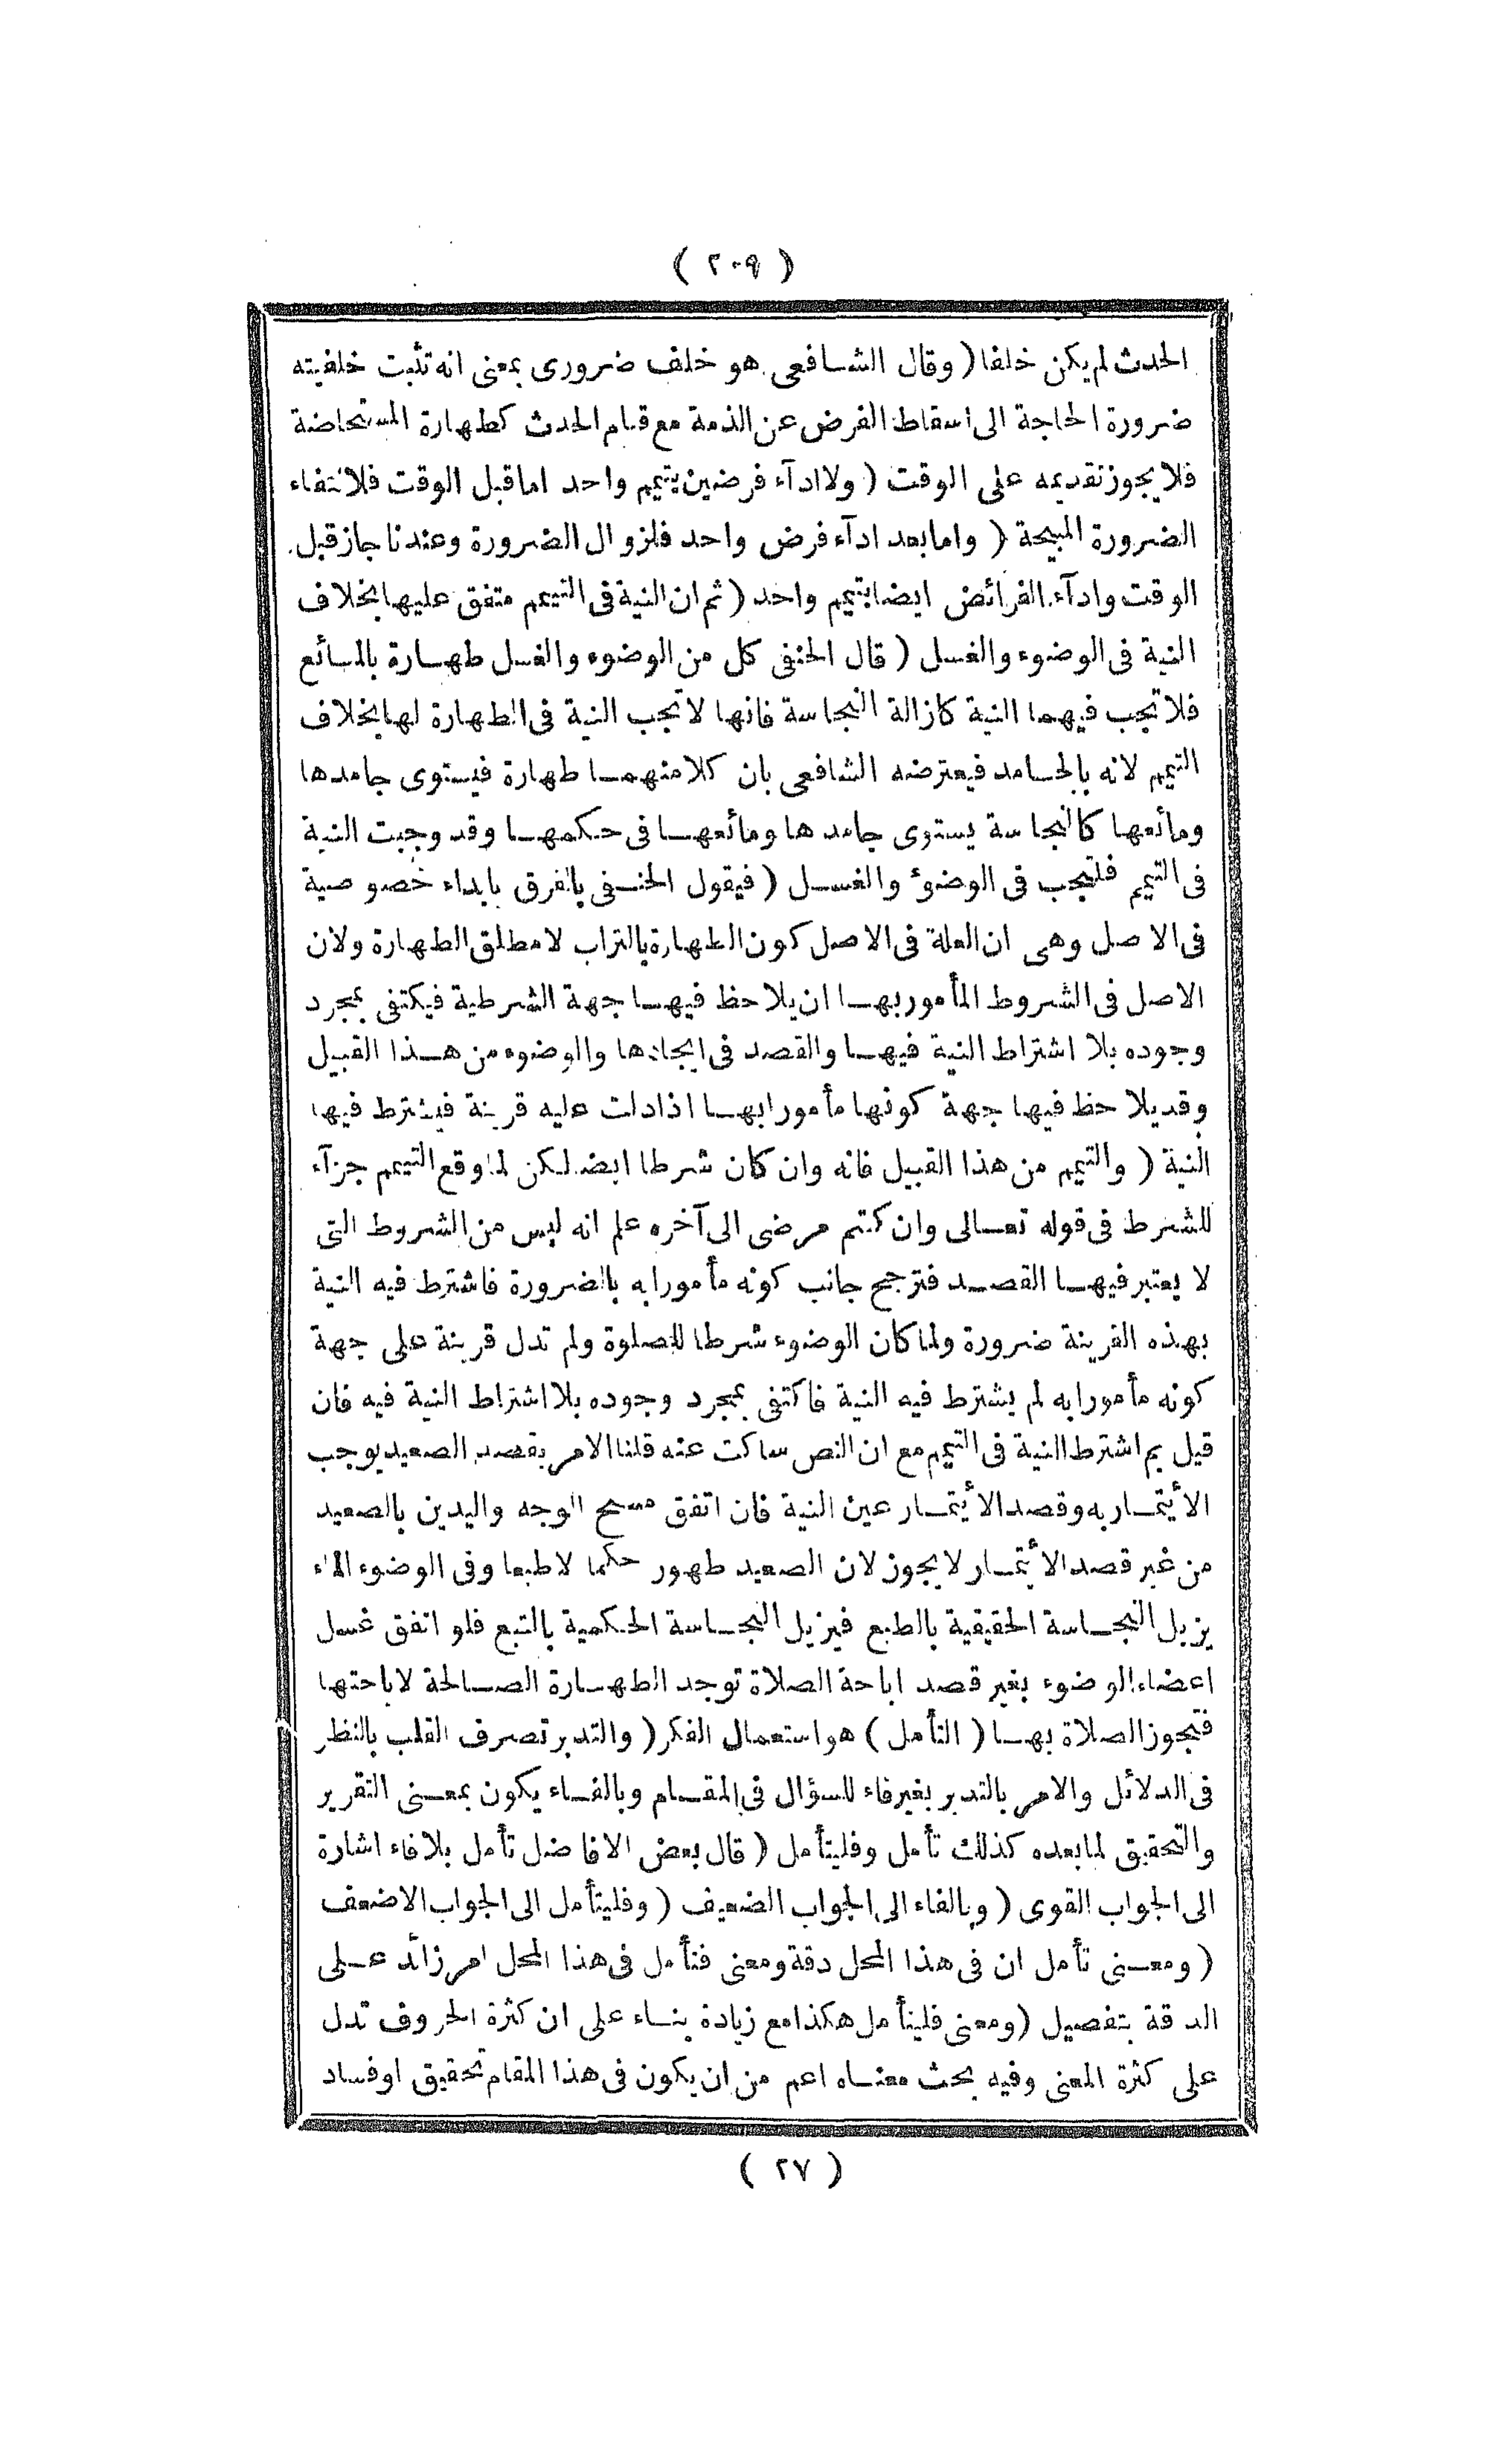 ( ٢٠٩ )
الحدث لم يكن خلفا ( وقال الشافعى هو خلف ضرورى بمعنى انه تثبت خلفيته
ضرورة الحاجة الى اسقاط الفرض عن الذمة مع قيام الحدث كطهارة المستحاضة
فلا يجوز تقديمه على الوقت ( ولا ادآء فرضين بتيمم واحد اما قبل الوقت فلانتفاء
الضرورة المبيحة ( واما بعد ادآء فرض واحد فلزوال الضرورة وعندنا جاز قبل
الوقت وادآء الفرائض ايضا بتيمم واحد ( ثم ان النية فى التيمم متفق عليها بخلاف
النية فى الوضوء والغسل ( قال الحنفى كل من الوضوء والغسل طهارة بالمائع
فلا تجب فيهما النية كازالة النجاسة فانها لا تجب النية فى الطهارة لها بخلاف
التيمم لانه بالجامد فيعترضه الشافعى بان كلا منهما طهارة فيستوى جامدها
ومائعها كالنجاسة يستوى جامدها ومائعها فى حكمها وقد وجبت النية
فى التيمم فلتجب فى الوضوء والغسل ( فيقول الحنفى بالفرق بابداء خصوصية
فى الاصل وهى ان العلة فى الاصل كون الطهارة بالتراب لا مطلق الطهارة ولان
الاصل فى الشروط المأمور بها ان يلاحظ فيها جهة الشرطية فيكتفى بمجرد
وجوده بلا اشتراط النية فيها والقصد فى ايجادها والوضوء من هذا القبيل
وقد يلاحظ فيها جهة كونها مأمورا بها اذا دلت عليه قرينة فيشترط فيها
النية ( والتيمم من هذا القبيل فانه وان كان شرطا ايضا لكن لما وقع التيمم جزآء
للشرط فى قوله تعالى وان كنتم مرضى الى آخره علم انه ليس من الشروط التى
لا يعتبر فيها القصد فترجح جانب كونه مأمورا به بالضرورة فاشترط فيه النية
بهذه القرينة ضرورة ولما كان الوضوء شرطا للصلوة ولم تدل قرينة على جهة
كونه مأمورا به لم يشترط فيه النية فاكتفى بمجرد وجوده بلا اشتراط النية فيه فان
قيل بم اشترط النية فى التيمم مع ان النص ساكت عنه قلنا الامر بقصد الصعيد يوجب
الأيتمار به وقصد الأيتمار عين النية فان اتفق مسح الوجه واليدين بالصعيد
من غير قصد الأيتمار لا يجوز لان الصعيد طهور حكما لا طبعا وفى الوضوء الماء
يزيل النجاسة الحقيقية بالطبع فيزيل النجاسة الحكمية بالتبع فلو اتفق غسل
اعضاء الوضوء بغير قصد اباحة الصلاة توجد الطهارة الصالحة لاباحتها
فتجوز الصلاة بها ( التأمل ) هو استعمال الفكر ( والتدبر تصرف القلب بالنظر
فى الدلائل والامر بالتدبر بغير فاء للسؤال فى المقام وبالفاء يكون بمعنى التقرير
والتحقيق لما بعده كذلك تأمل وفليتأمل ( قال بعض الافاضل تأمل بلا فاء اشارة
الى الجواب القوى ( وبالفاء الى الجواب الضعيف ( وفليتأمل الى الجواب الاضعف
( ومعنى تأمل ان فى هذا المحل دقة ومعنى فتأمل فى هذا المحل امر زائد على
الدقة بتفصيل ( ومعنى فليتأمل هكذا مع زيادة بناء على ان كثرة الحروف تدل
على كثرة المعنى وفيه بحث معناه اعم من ان يكون فى هذا المقام تحقيق او فساد
( ٢٧ )